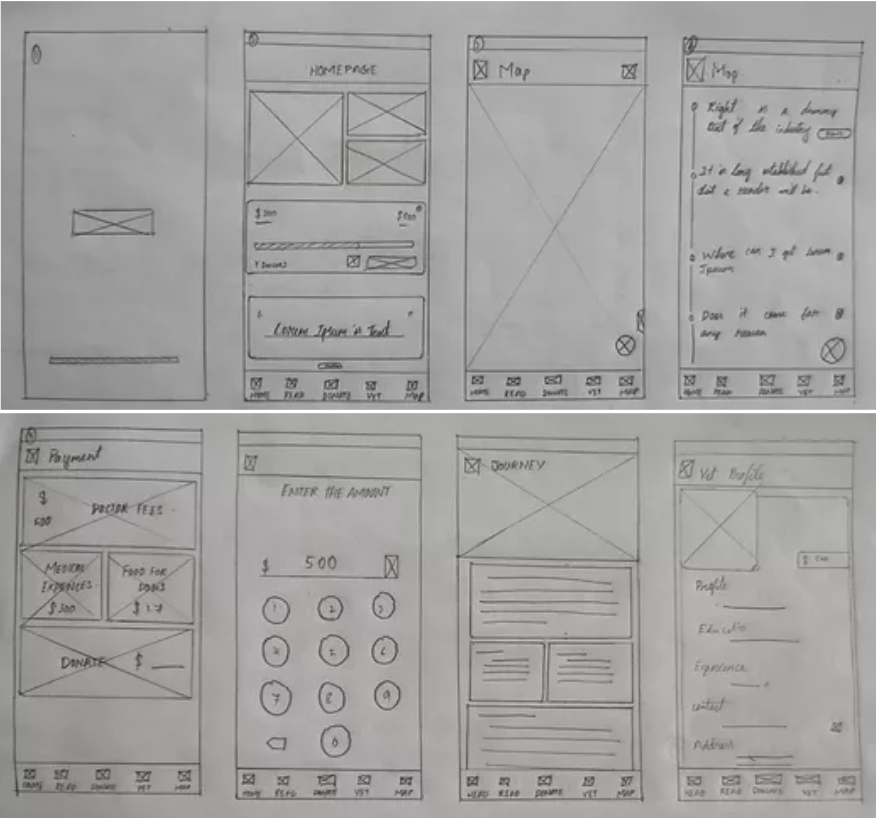 HOMEPAGE
$300
$500
DONORS
Lorem Ipsum is Text
HOME READ DONATE VET MAP
Map
HOME READ DONATE VET MAP
Map
Right is a dummy
text of the industry
It is long established fact
that a reader will be.
Where can I get lorem
Ipsum
Does it come for
any reason
HOME READ DONATE VET MAP
Payment
$
500
DOCTOR FEES
MEDICAL
EXPENCES
$300
FOOD FOR
DOGIS
$ 1.7
DONATE $
HOME READ DONATE VET MAP
ENTER THE AMOUNT
$ 500
1 2 3
6
7 8 9
0
HOME READ DONATE VET MAP
JOURNEY
READ DONATE VET MAP
Vet Profile
$ 500
Profile
Educatio
Experience
contact
Address
READ DONATE VET MAP